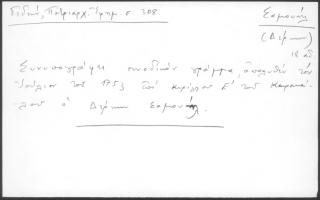 Γεδεών, Πατριαρχ. Ἐφημ. σ. 308.
Σαμουὴλ
(Δέρκων)
18 αἰ.
Συνυπογράφει συνοδικὸν γράμμα, ἀπολυθὲν τὸν
Ἰούλιον τοῦ 1753 ὑπὸ Κυρίλλου Ε' τοῦ Καρακάλ-
λου ὁ Δέρκων Σαμουήλ.